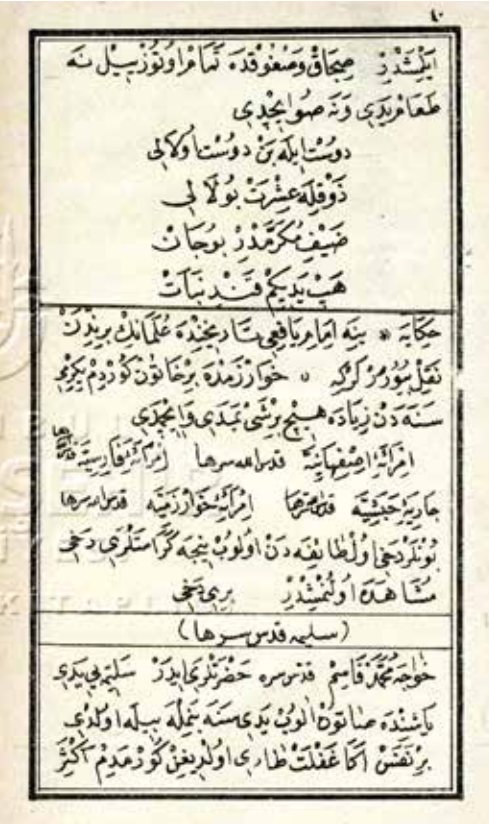 ١٠
ایلشدر صیجاق وصغوقده تمام اوتوز ییل نه
طعام یدی ونه صو ایچدی
دوست ایله بن دوست اولالی
ذوقله عشرت بولالی
ضیف مکرمدر بو جان
هپ یدیکم قند نبات
حکایه * ینه امام یافعی تاریخنده علمانك برندن
نقل بیوررلرکه خوارزمده بر خاتون کوردم یکرمی
سنه دن زیاده هیچ برشی یمدی وایچمدی
امرأۀ اصفهانیه قدس الله سرها امرأۀ فارسیه قدس سرها
جاریۀ حبشیه قدس سرها امرأۀ خوارزمیه قدس سرها
بونلر دخی اول طائفه دن اولوب نیجه کرامتلری دخی
مشاهده اولنمشدر بری دخی
(سلیمه قدس سرها)
خواجه محمد قاسم قدس سره حضرتلری ایدر سلیمه یی یدی
یاشنده صاتون الوب یدی سنه بنمله بیله اولدی
بر نفس اکا غفلت طاری اولدیغن کورمدم اکثر